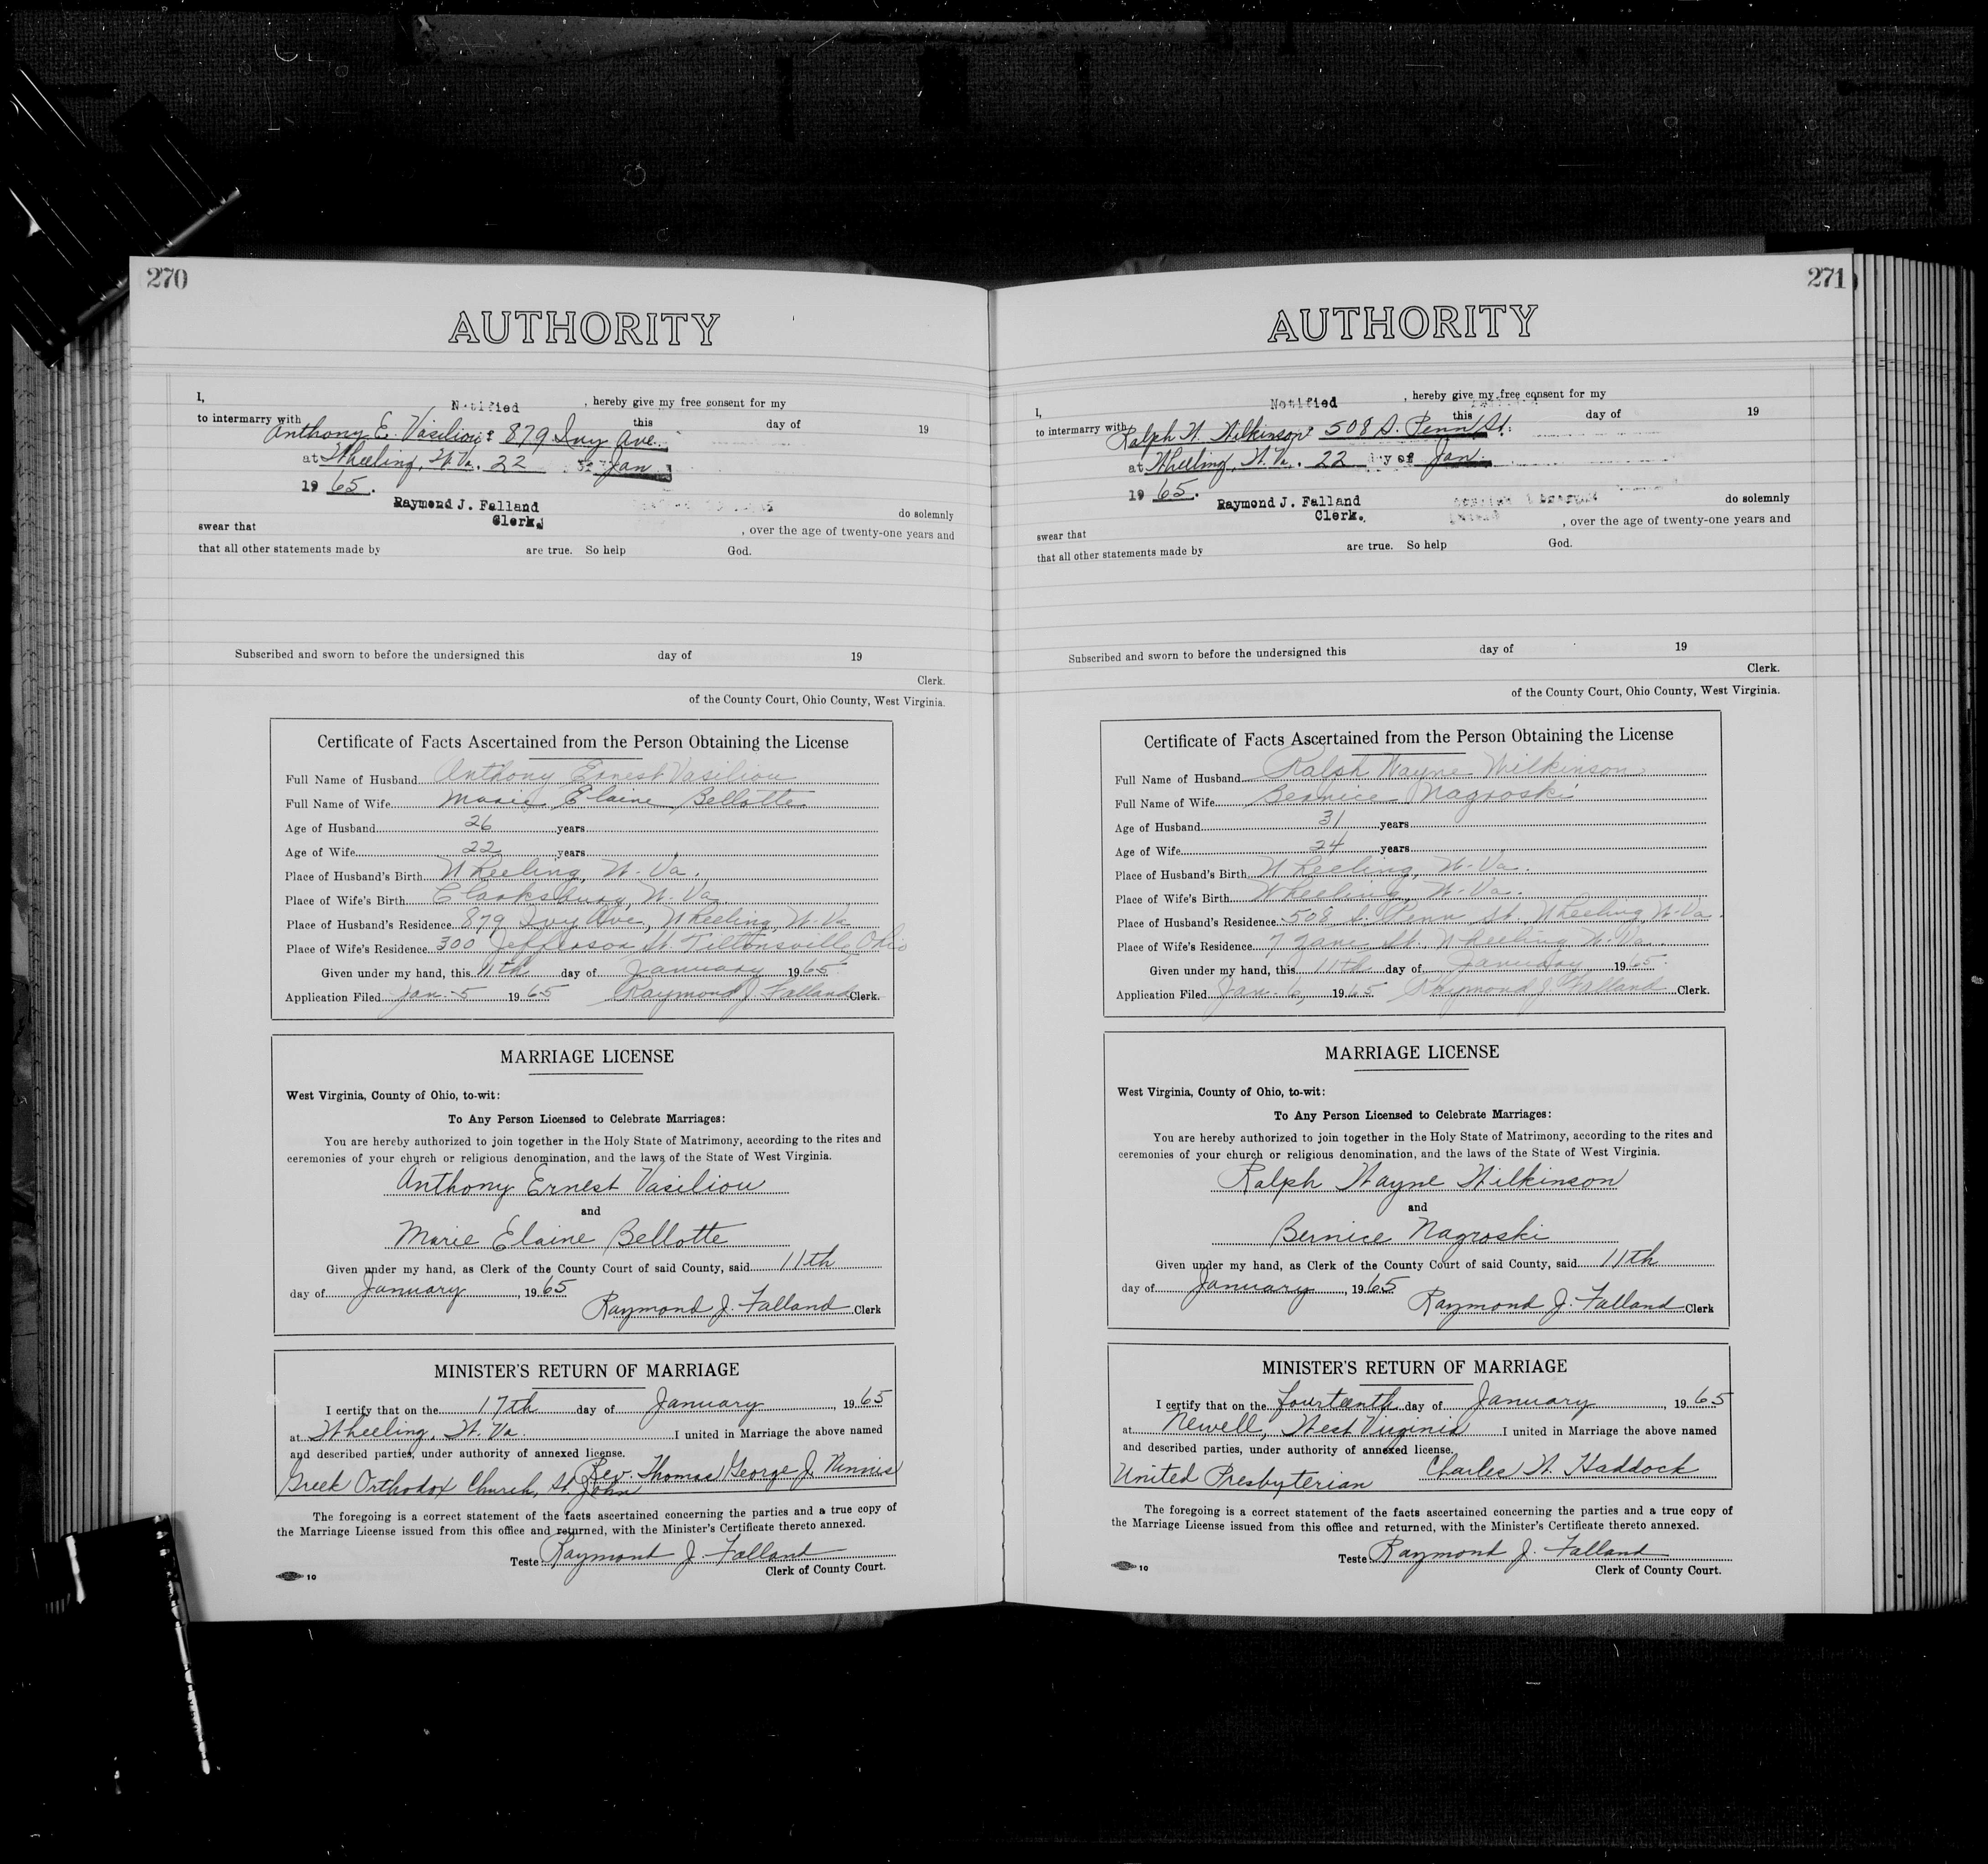 270
AUTHORITY
I, Notified , hereby give my free consent for my
to intermarry with this day of 19
Anthony E. Vasiliou 879 Ivy Ave.
at Wheeling, W. Va. 22 Jan
19 65.
Raymond J. Falland
Clerk.
do solemnly
swear that , over the age of twenty-one years and
that all other statements made by are true. So help God.
Subscribed and sworn to before the undersigned this day of 19
Clerk.
of the County Court, Ohio County, West Virginia.
Certificate of Facts Ascertained from the Person Obtaining the License
Full Name of Husband Anthony Ernest Vasiliou
Full Name of Wife Marie Elaine Bellotte
Age of Husband 26 years
Age of Wife 22 years
Place of Husband's Birth Wheeling, W. Va.
Place of Wife's Birth Clarksburg, W. Va.
Place of Husband's Residence 879 Ivy Ave, Wheeling, W. Va
Place of Wife's Residence 300 Jefferson St Tiltonsville Ohio
Given under my hand, this 11th day of January 1965
Application Filed Jan. 5 1965 Raymond J. Falland Clerk.
MARRIAGE LICENSE
West Virginia, County of Ohio, to-wit:
To Any Person Licensed to Celebrate Marriages:
You are hereby authorized to join together in the Holy State of Matrimony, according to the rites and
ceremonies of your church or religious denomination, and the laws of the State of West Virginia.
Anthony Ernest Vasiliou
and
Marie Elaine Bellotte
Given under my hand, as Clerk of the County Court of said County, said 11th
day of January, 1965
Raymond J. Falland Clerk
MINISTER'S RETURN OF MARRIAGE
I certify that on the 17th day of January, 1965
at Wheeling, W. Va. I united in Marriage the above named
and described parties, under authority of annexed license.
Rev. Thomas George J.
Greek Orthodox Church, St. John
The foregoing is a correct statement of the facts ascertained concerning the parties and a true copy of
the Marriage License issued from this office and returned, with the Minister's Certificate thereto annexed.
Teste Raymond J. Falland
Clerk of County Court.
10
271
AUTHORITY
I, Notified , hereby give my free consent for my
to intermarry with this day of 19
Ralph W. Wilkinson 508 S. Penn St.
at Wheeling, W. Va. 22 day of Jan.
19 65.
Raymond J. Falland
Clerk.
do solemnly
swear that , over the age of twenty-one years and
that all other statements made by are true. So help God.
Subscribed and sworn to before the undersigned this day of 19
Clerk.
of the County Court, Ohio County, West Virginia.
Certificate of Facts Ascertained from the Person Obtaining the License
Full Name of Husband Ralph Wayne Wilkinson
Full Name of Wife Bernice Nagroski
Age of Husband 31 years
Age of Wife 24 years
Place of Husband's Birth Wheeling, W. Va.
Place of Wife's Birth Wheeling, W. Va.
Place of Husband's Residence 508 S. Penn St., Wheeling, W. Va.
Place of Wife's Residence 7 Zane St., Wheeling W. Va.
Given under my hand, this 11th day of January 1965.
Application Filed Jan. 6, 1965 Raymond J. Falland Clerk.
MARRIAGE LICENSE
West Virginia, County of Ohio, to-wit:
To Any Person Licensed to Celebrate Marriages:
You are hereby authorized to join together in the Holy State of Matrimony, according to the rites and
ceremonies of your church or religious denomination, and the laws of the State of West Virginia.
Ralph Wayne Wilkinson
and
Bernice Nagroski
Given under my hand, as Clerk of the County Court of said County, said 11th
day of January, 1965
Raymond J. Falland Clerk
MINISTER'S RETURN OF MARRIAGE
I certify that on the fourteenth day of January, 1965
at Newell, West Virginia I united in Marriage the above named
and described parties, under authority of annexed license.
United Presbyterian Charles W. Haddock
The foregoing is a correct statement of the facts ascertained concerning the parties and a true copy of
the Marriage License issued from this office and returned, with the Minister's Certificate thereto annexed.
Teste Raymond J. Falland
Clerk of County Court.
10